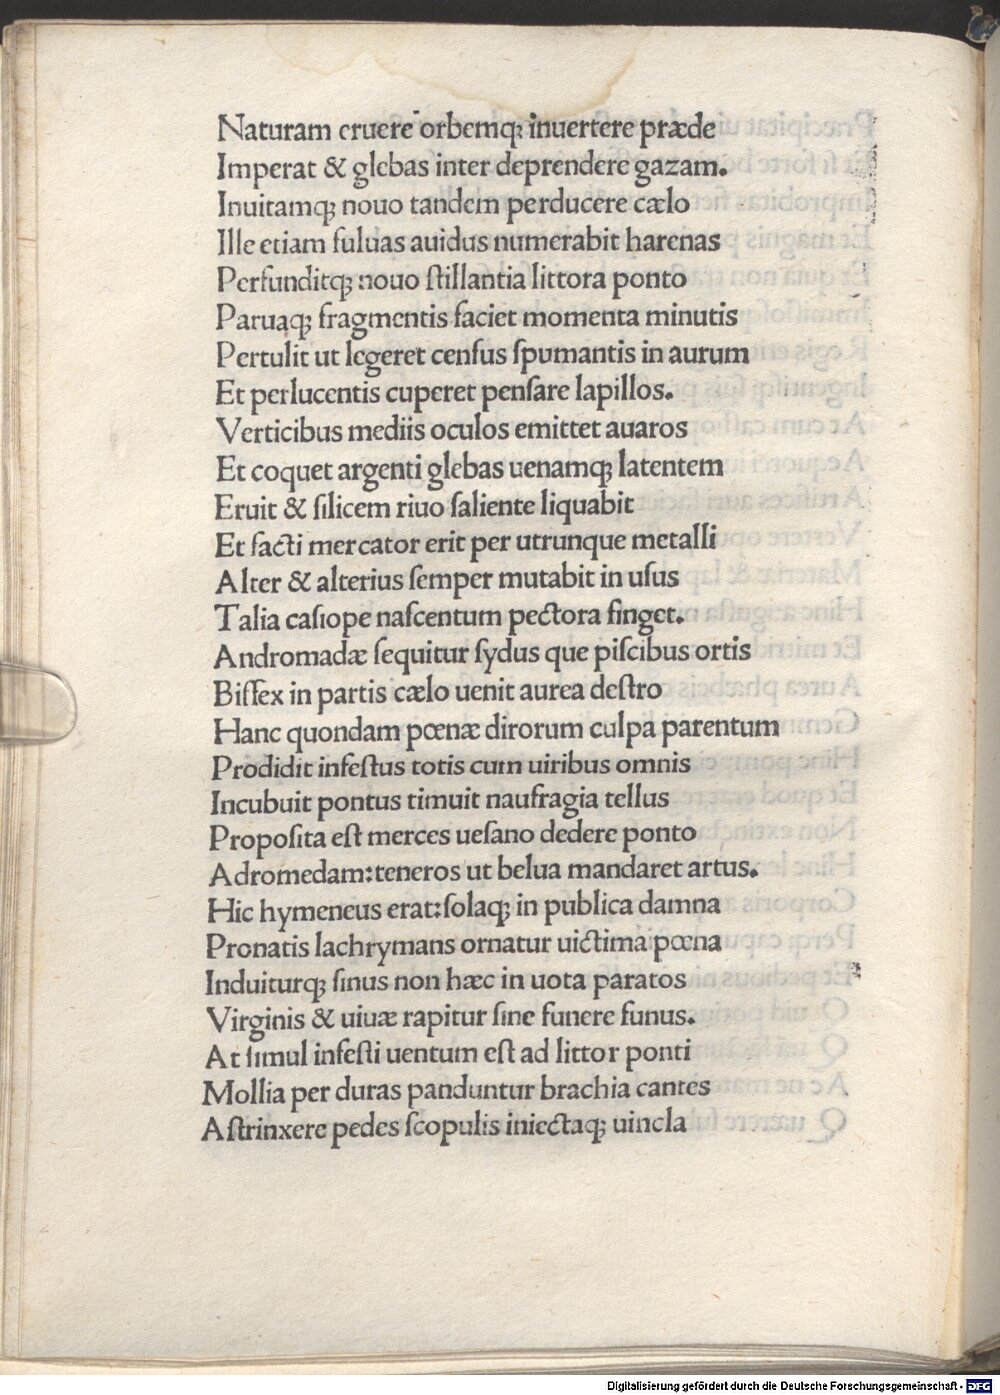 Naturam eruere orbemq; inuertere præde
Imperat & glebas inter deprendere gazam.
Inuitamq; nouo tandem perducere cælo
Ille etiam fuluas auidus numerabit harenas
Perfunditq; nouo ſtillantia littora ponto
Paruaq; fragmentis faciet momenta minutis
Pertulit ut legeret cenſus ſpumantis in aurum
Et perlucentis cuperet penſare lapillos.
Verticibus mediis oculos emittet auaros
Et coquet argenti glebas uenamq; latentem
Eruit & ſilicem riuo ſaliente liquabit
Et facti mercator erit per utrunque metalli
Alter & alterius ſemper mutabit in uſus
Talia caſiope naſcentum pectora finget.
Andromadæ ſequitur ſydus que piſcibus ortis
Biſſex in partis cælo uenit aurea deſtro
Hanc quondam pœnæ dirorum culpa parentum
Prodidit infeſtus totis cum uiribus omnis
Incubuit pontus timuit naufragia tellus
Propoſita eſt merces ueſano dedere ponto
Adromedam:teneros ut belua mandaret artus.
Hic hymeneus erat:ſolaq; in publica damna
Pronatis lachrymans ornatur uictima pœna
Induiturq; ſinus non hæc in uota paratos
Virginis & uiuæ rapitur ſine funere funus.
At ſimul infeſti uentum eſt ad littor ponti
Mollia per duras panduntur brachia cantes
Aſtrinxere pedes ſcopulis iniectaq; uincla
Digitalisierung gefördert durch die Deutsche Forschungsgemeinschaft - DFG